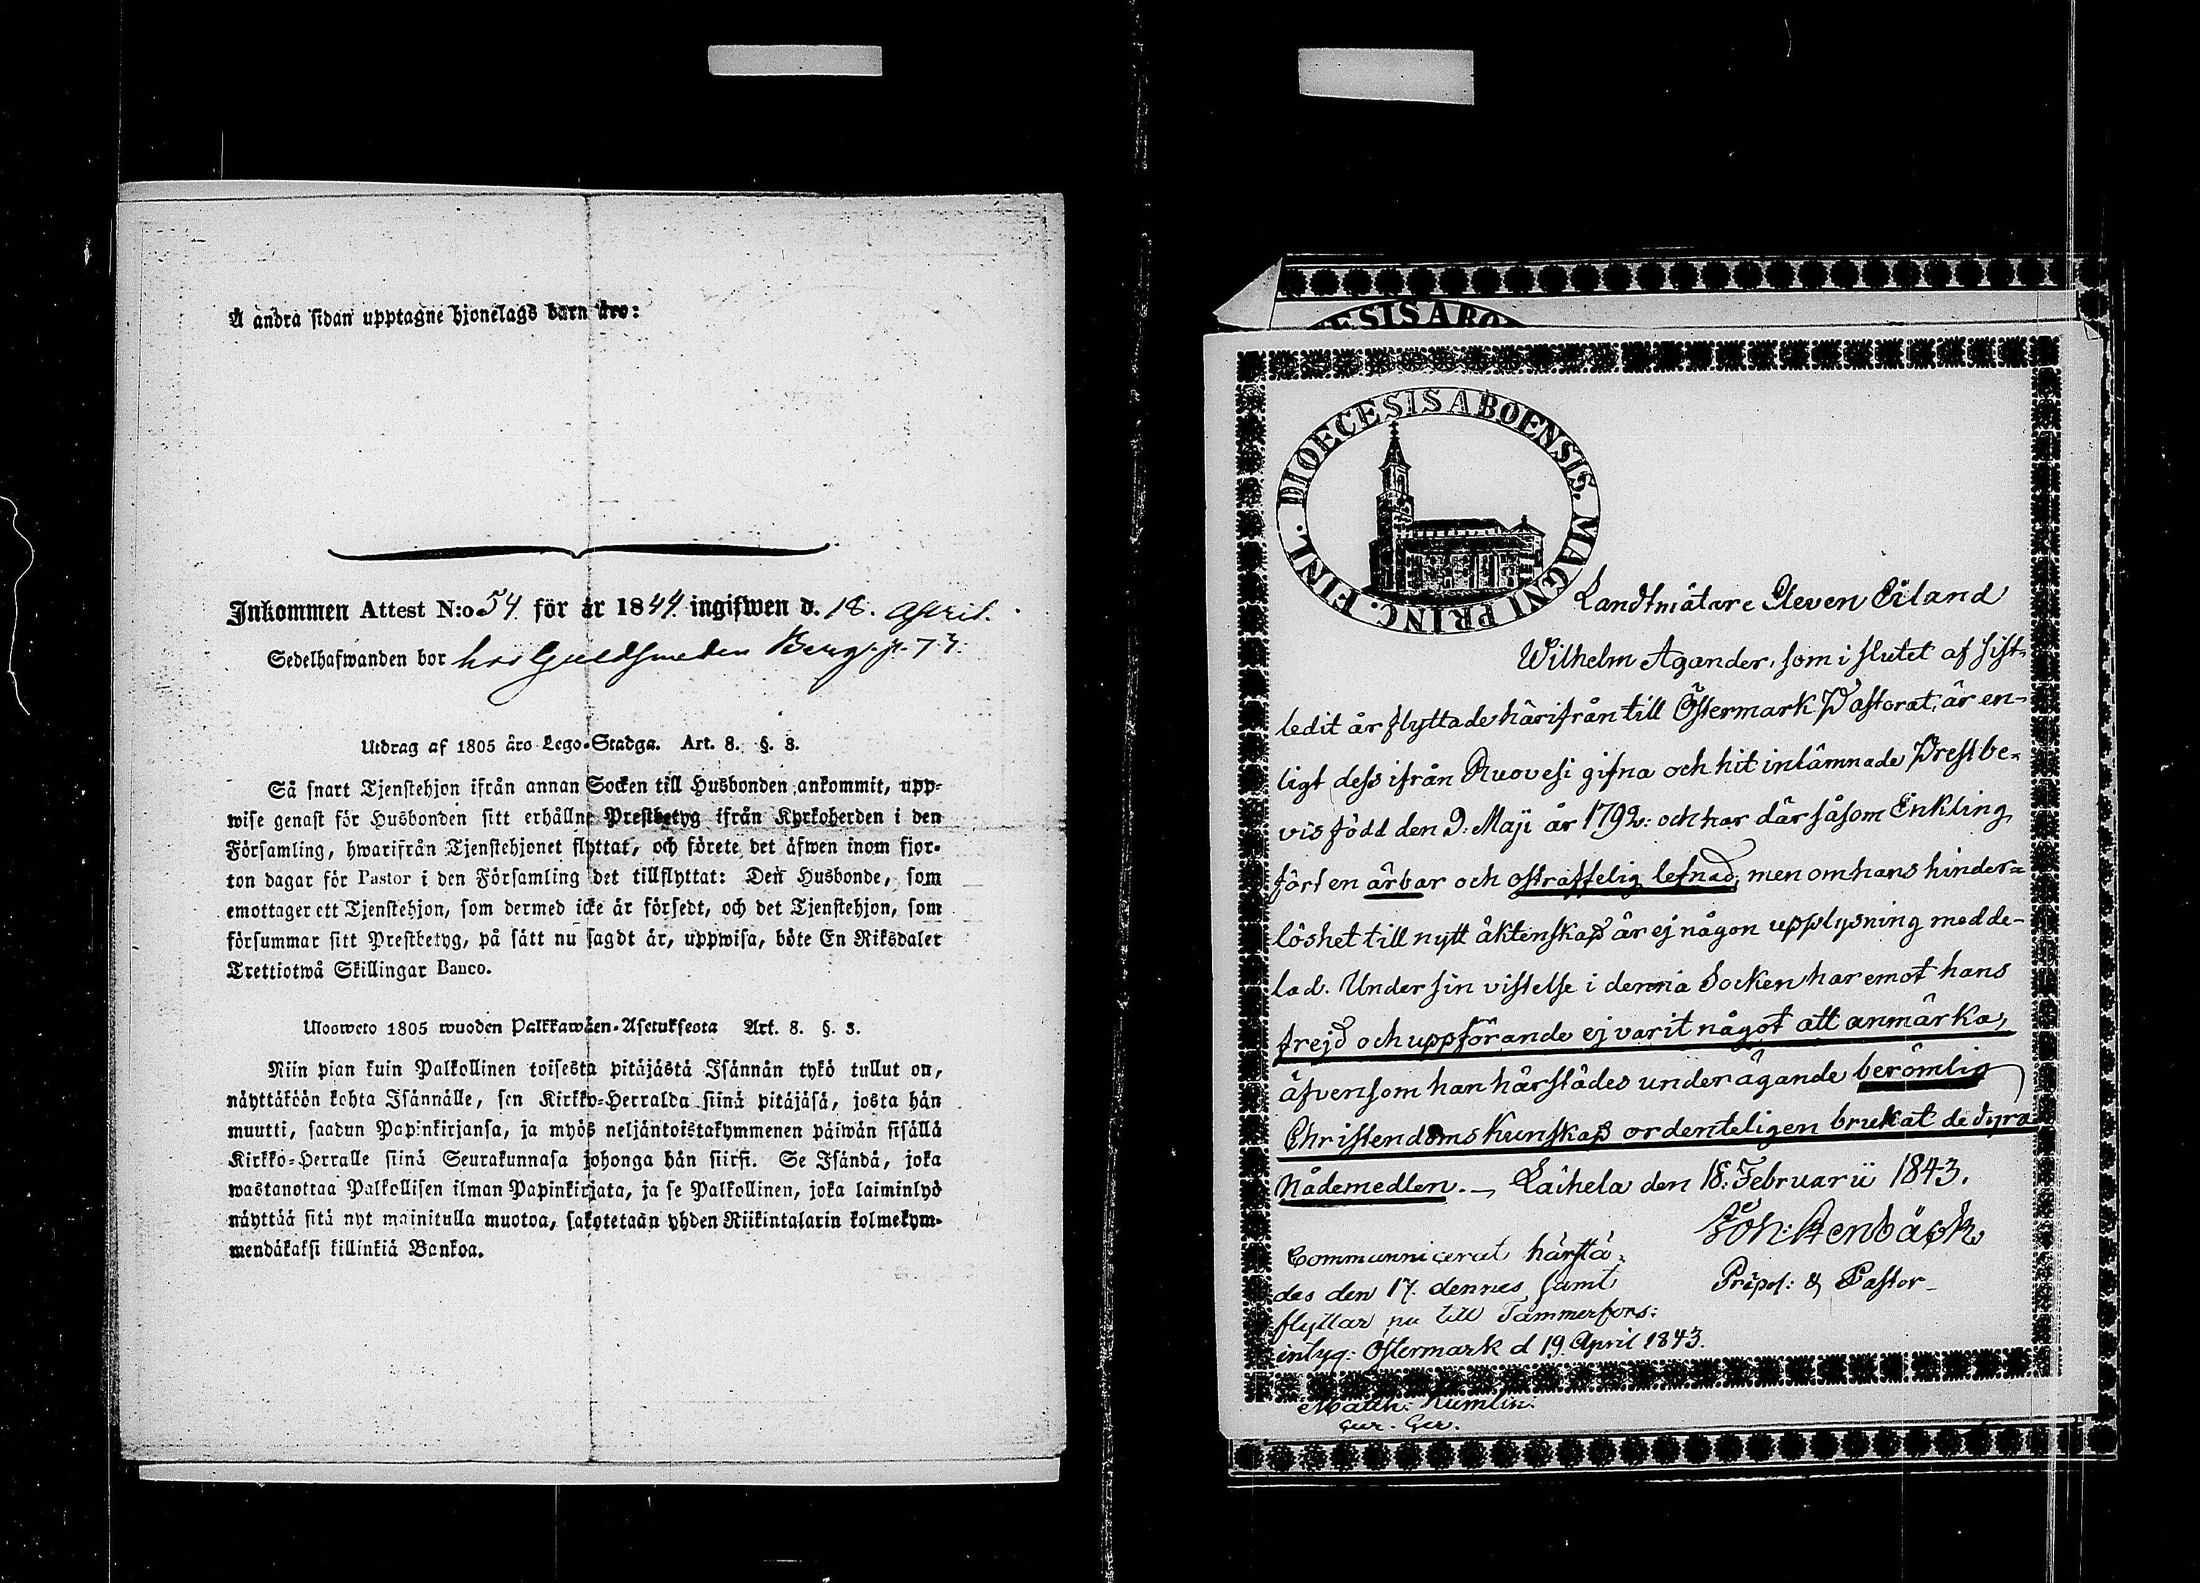 Å andra sidan upptagne hjonelags barn äro:
Inkommen Attest N:o 54 för år 1844 ingifwen d. 18. April.
Sedelhafwanden bor hos Guldsmeden Berg p. 73.
Utdrag af 1805 års Lego-Stadga. Art. 8. §. 3.
Så snart Tjenstehjon ifrån annan Socken till Husbonden ankommit, upp-
wise genast för Husbonden sitt erhållne Prestbetyg ifrån Kyrkoherden i den
Församling, hwarifrån Tjenstehjonet flyttat, och förete det äfwen inom fjor-
ton dagar för Pastor i den Församling det tillflyttat: Den Husbonde, som
emottager ett Tjenstehjon, som dermed icke är försedt, och det Tjenstehjon, som
försummar sitt Prestbetyg, på sätt nu sagdt är, uppwisa, böte En Riksdaler
Trettiotwå Skillingar Banco.
Ulosweto 1805 wuoden Palkkawäen-Asetuksesta Art. 8. §. 3.
Niin pian kuin Palkollinen toisesta pitäjästä Isännän tykö tullut on,
näyttäköön kohta Isännälle, sen Kirkko-Herralda siinä pitäjäsä, josta hän
muutti, saadun Papinkirjansa, ja myös neljäntoistakymmenen päiwän sisällä
Kirkko-Herralle siinä Seurakunnasa johonga hän siirsi. Se Isändä, joka
wastanottaa Palkollisen ilman Papinkirjata, ja se Palkollinen, joka laiminlyö
näyttää sitä nyt mainitulla muotoa, sakotetaan yhden Riikintalarin kolmekym-
mendäkaksi killinkiä Bankoa.
ESIS ABO
DIOECESIS ABOENSIS. MAGNI PRINC. FINL.
Landtmätare Eleven Erland
Wilhelm Agander, som i slutet af sist-
ledit år flyttade härifrån till Östermark Pastorat, är en-
ligt dess ifrån Ruovesi gifna och hit inlämnade Prestbe-
vis född den 9: Maji år 1792: och har där såsom Enkling
fört en ärbar och ostraffelig lefnad, men om hans hinder-
löshet till nytt äktenskap är ej någon upplysning medde-
lad. Under sin vistelse i denna Socken har emot hans
frejd och uppförande ej varit något att anmärka,
äfvensom han härstädes under ägande berömlig
Christendoms kunskap ordenteligen brukat de dyra
Nådemedlen. — Laihela den 18: Februarii 1843.
Joh: Stenbäck
Præpos: & Pastor
Communicerat härstä-
des den 17. dennes samt
flyttar nu till Tammerfors:
intyg: Östermark d 19. April 1843.
Matth: Kumlin.